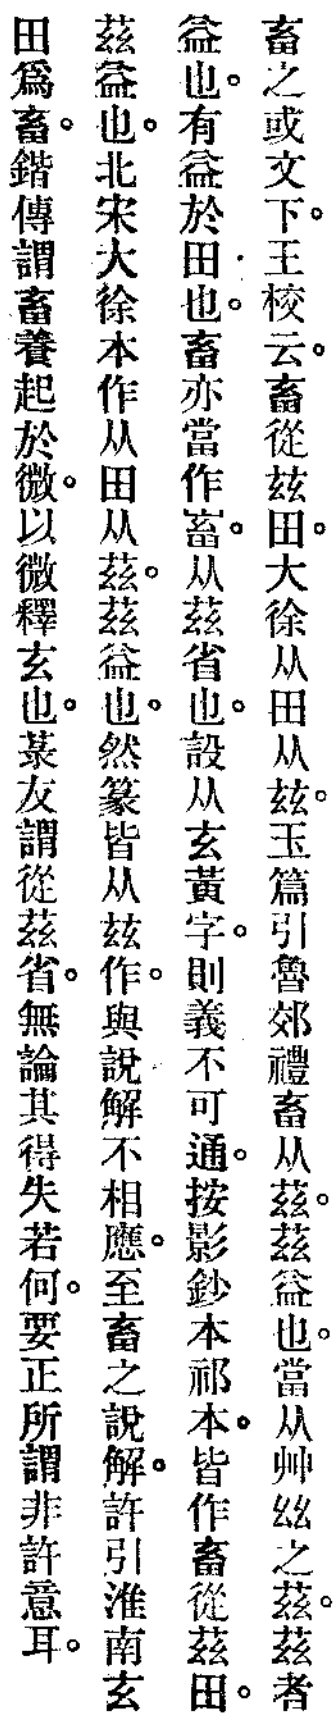 畜之或文下。王校云。畜從玆田。大徐从田从玆。玉篇引魯郊禮畜从茲。茲益也。當从艸𢆶之茲。茲者
益也。有益於田也。畜亦當作畜。从茲省也。設从玄黃字。則義不可通。按影鈔本祁本。皆作畜從茲田。
茲益也。北宋大徐本作从田从茲。茲益也。然篆皆从玆作。與說解不相應。至畜之說解。許引淮南玄
田爲畜。鍇傳謂畜養起於微。以微釋玄也。菉友謂從茲省。無論其得失若何。要正所謂非許意耳。